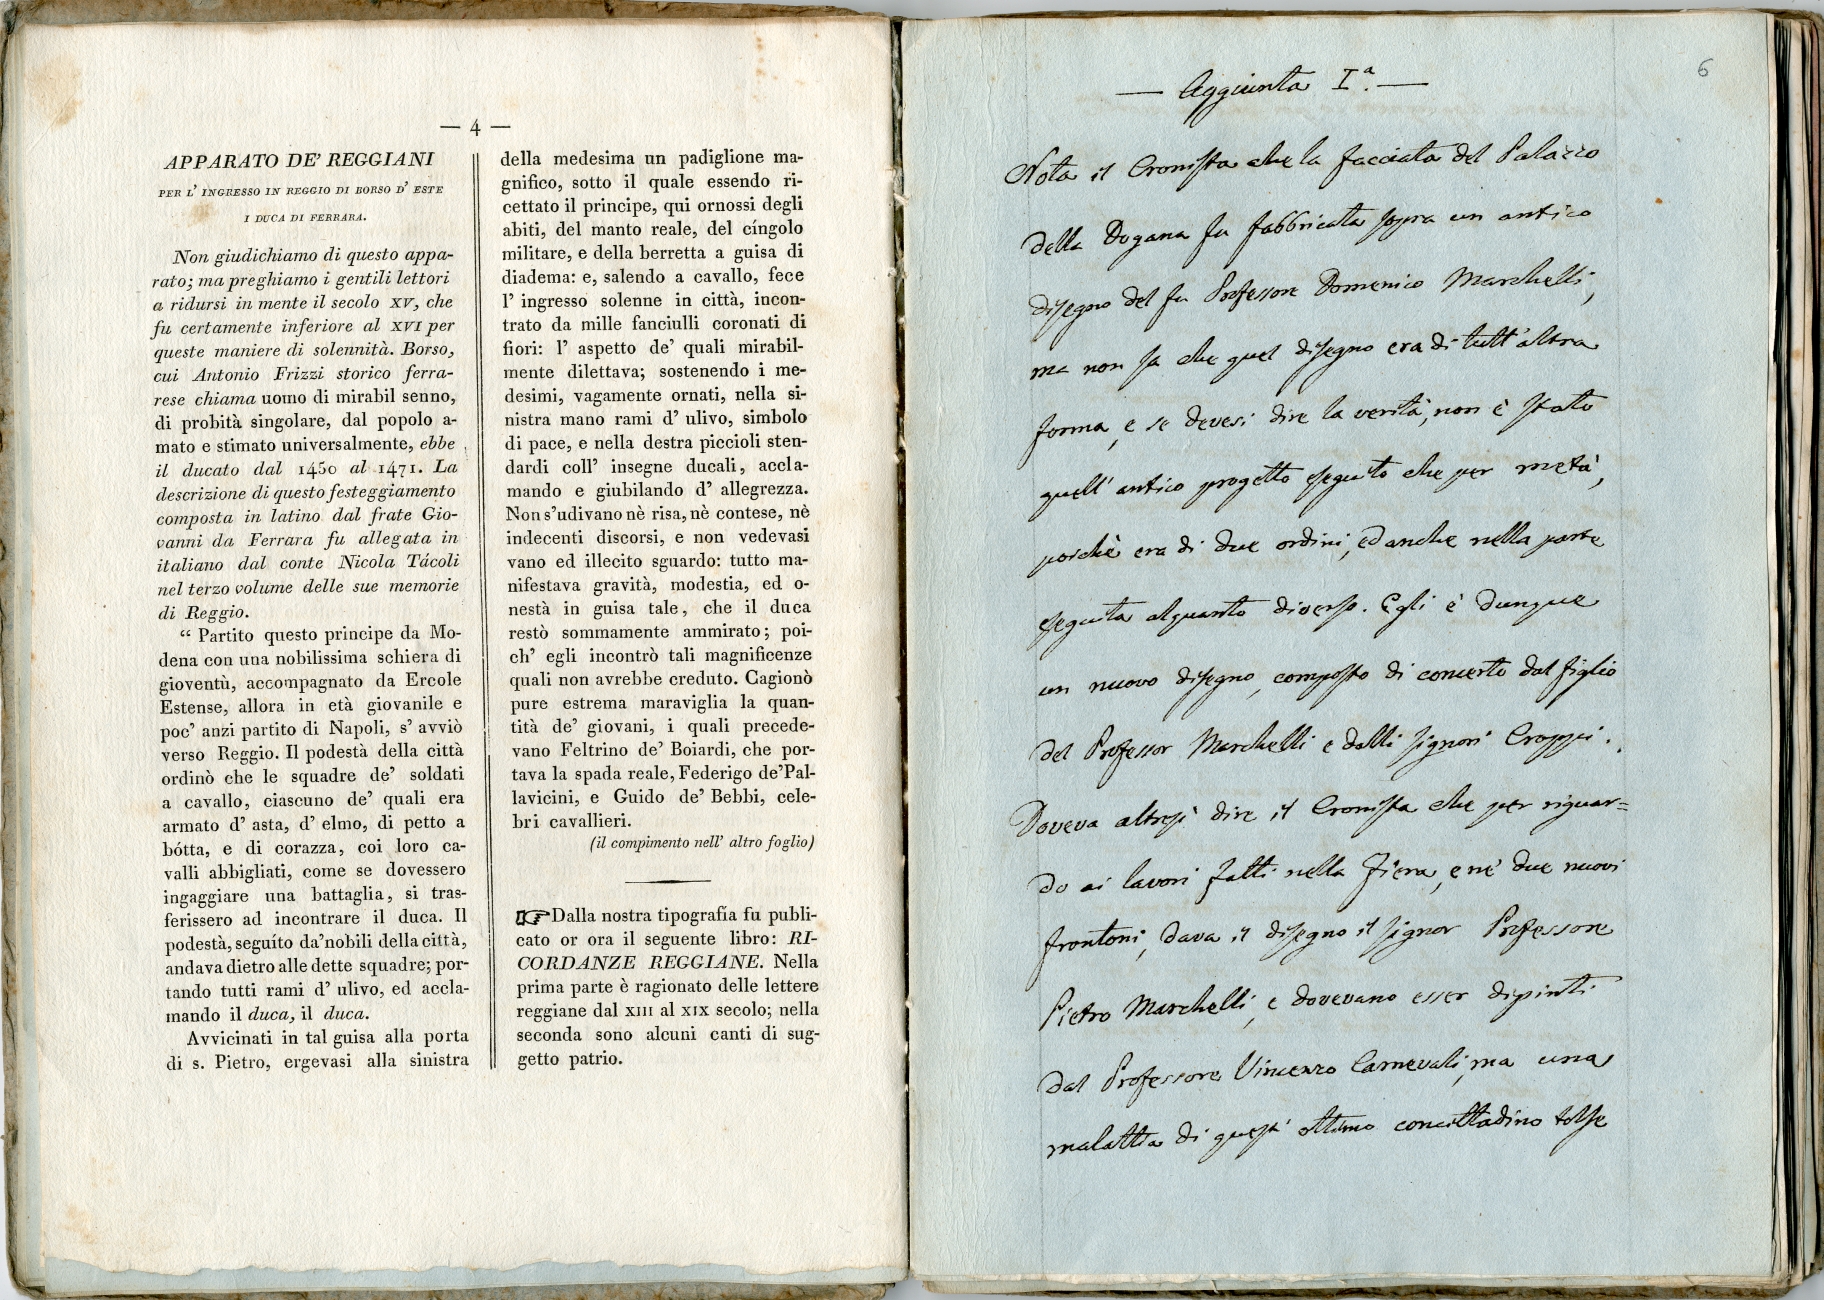 — 4 —
APPARATO DE' REGGIANI
PER L' INGRESSO IN REGGIO DI BORSO D' ESTE
I DUCA DI FERRARA.
Non giudichiamo di questo appa-
rato; ma preghiamo i gentili lettori
a ridursi in mente il secolo XV, che
fu certamente inferiore al XVI per
queste maniere di solennità. Borso,
cui Antonio Frizzi storico ferra-
rese chiama uomo di mirabil senno,
di probità singolare, dal popolo a-
mato e stimato universalmente, ebbe
il ducato dal 1450 al 1471. La
descrizione di questo festeggiamento
composta in latino dal frate Gio-
vanni da Ferrara fu allegata in
italiano dal conte Nicola Tácoli
nel terzo volume delle sue memorie
di Reggio.
“ Partito questo principe da Mo-
dena con una nobilissima schiera di
gioventù, accompagnato da Ercole
Estense, allora in età giovanile e
poc' anzi partito di Napoli, s' avviò
verso Reggio. Il podestà della città
ordinò che le squadre de' soldati
a cavallo, ciascuno de' quali era
armato d' asta, d' elmo, di petto a
bótta, e di corazza, coi loro ca-
valli abbigliati, come se dovessero
ingaggiare una battaglia, si tras-
ferissero ad incontrare il duca. Il
podestà, seguíto da'nobili della città,
andava dietro alle dette squadre; por-
tando tutti rami d' ulivo, ed accla-
mando il duca, il duca.
Avvicinati in tal guisa alla porta
di s. Pietro, ergevasi alla sinistra
della medesima un padiglione ma-
gnifico, sotto il quale essendo ri-
cettato il principe, qui ornossi degli
abiti, del manto reale, del cíngolo
militare, e della berretta a guisa di
diadema: e, salendo a cavallo, fece
l' ingresso solenne in città, incon-
trato da mille fanciulli coronati di
fiori: l' aspetto de' quali mirabil-
mente dilettava; sostenendo i me-
desimi, vagamente ornati, nella si-
nistra mano rami d' ulivo, simbolo
di pace, e nella destra piccioli sten-
dardi coll' insegne ducali, accla-
mando e giubilando d' allegrezza.
Non s'udivano nè risa, nè contese, nè
indecenti discorsi, e non vedevasi
vano ed illecito sguardo: tutto ma-
nifestava gravità, modestia, ed o-
nestà in guisa tale, che il duca
restò sommamente ammirato; poi-
ch' egli incontrò tali magnificenze
quali non avrebbe creduto. Cagionò
pure estrema maraviglia la quan-
tità de' giovani, i quali precede-
vano Feltrino de' Boiardi, che por-
tava la spada reale, Federigo de'Pal-
lavicini, e Guido de' Bebbi, cele-
bri cavallieri.
(il compimento nell' altro foglio)
☞ Dalla nostra tipografía fu publi-
cato or ora il seguente libro: RI-
CORDANZE REGGIANE. Nella
prima parte è ragionato delle lettere
reggiane dal XIII al XIX secolo; nella
seconda sono alcuni canti di sug-
getto patrio.
6
— Aggiunta Iª. —
Nota il Cronista che la facciata del Palazzo
della Dogana fu fabbricata sopra un antico
disegno del fu Professore Domenico Marchelli,
ma non sa che quel disegno era di tutt'altra
forma, e se devesi dire la verità, non è stato
quell' antico progetto eseguito che per metà,
poichè era di due ordini, ed anche nella parte
eseguita alquanto diverso. Egli è dunque
un nuovo disegno, composto di concerto dal figlio
del Professor Marchelli e dalli signori Croppi.
Doveva altresì dire il Cronista che per riguar=
do ai lavori fatti nella Fiera, e ne' due nuovi
frontoni, dava il disegno il signor Professore
Pietro Marchelli, e dovevano esser dipinti
dal Professore Vincenzo Carnevali, ma una
malattia di quest' ottimo concittadino tolse